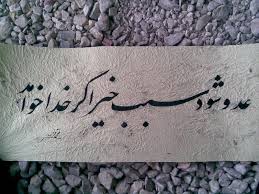 عدو شود سبب خیر اگر خدا خواهد